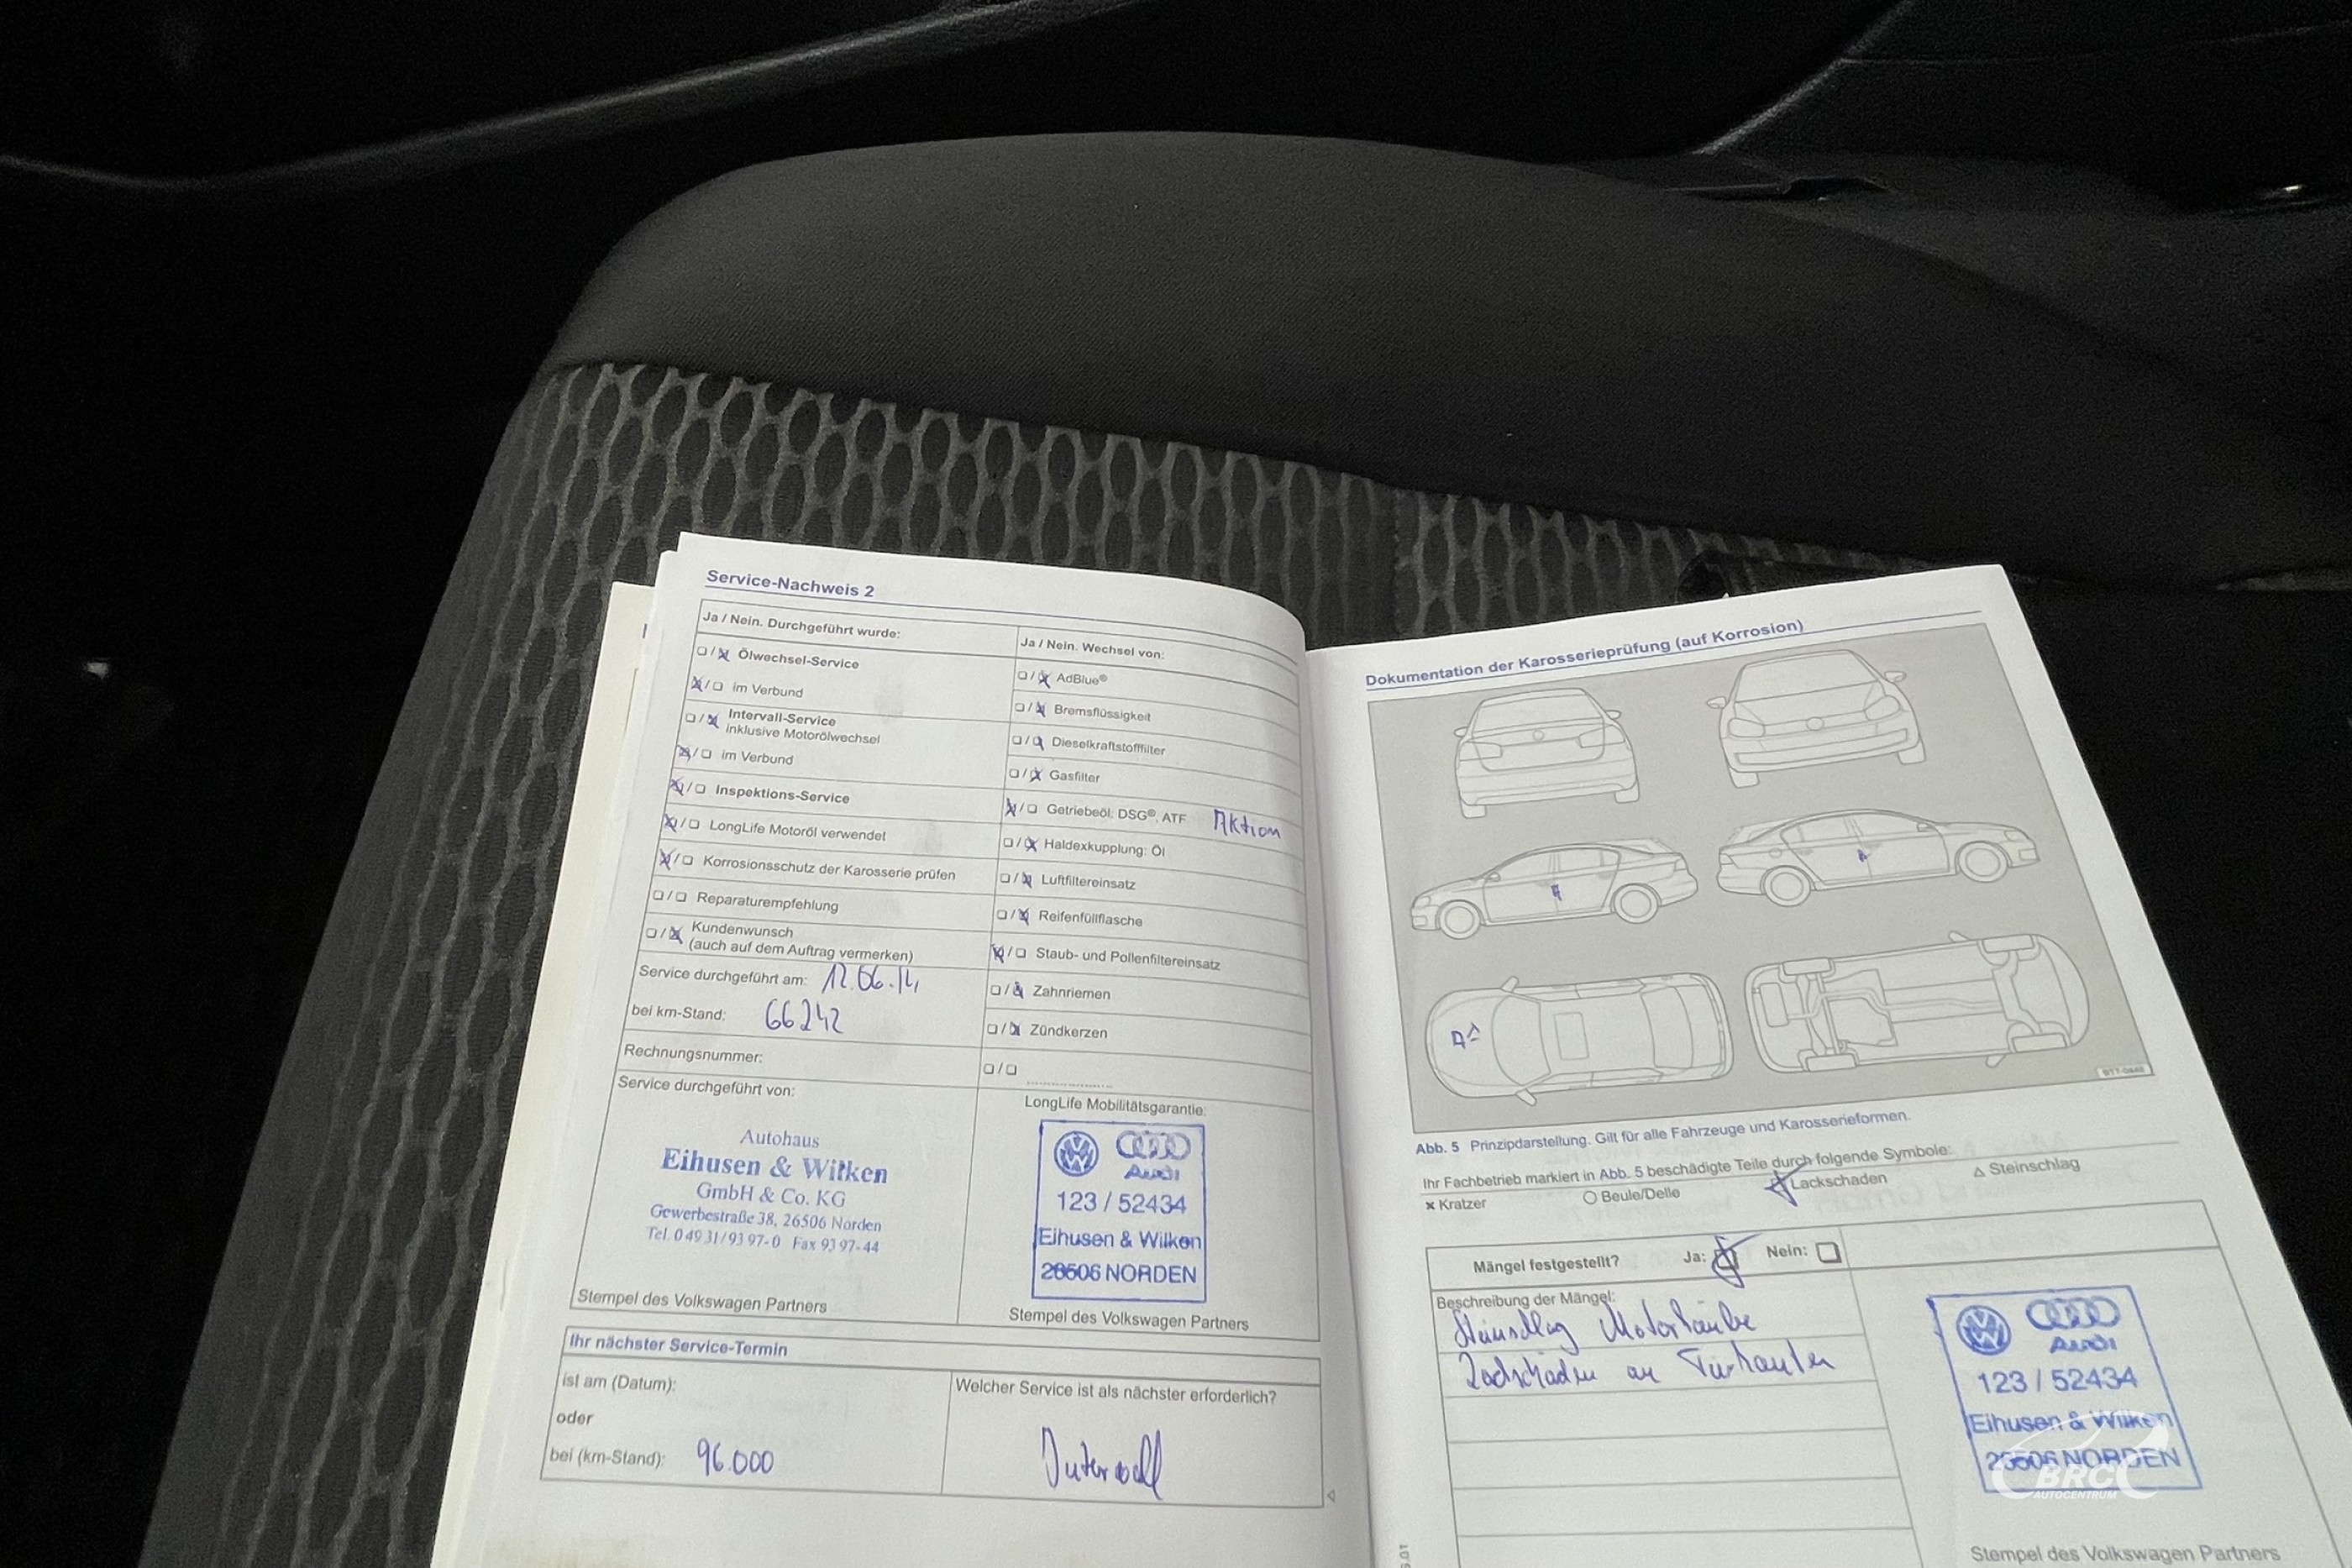 Service-Nachweis 2
Ja / Nein. Durchgeführt wurde:
Ölwechsel-Service
im Verbund
Intervall-Service
inklusive Motorölwechsel
im Verbund
Inspektions-Service
LongLife Motoröl verwendet
Korrosionsschutz der Karosserie prüfen
Reparaturempfehlung
Kundenwunsch
(auch auf dem Auftrag vermerken)
Service durchgeführt am: 12.06.14
bei km-Stand: 66242
Rechnungsnummer:
Service durchgeführt von:
Autohaus
Eihusen & Wilken
GmbH & Co. KG
Gewerbestraße 38, 26506 Norden
Tel. 0 49 31 / 93 97-0 Fax 93 97-44
Stempel des Volkswagen Partners
Ja / Nein. Wechsel von:
AdBlue®
Bremsflüssigkeit
Dieselkraftstofffilter
Gasfilter
Getriebeöl: DSG®, ATF Aktion
Haldexkupplung: Öl
Luftfiltereinsatz
Reifenfüllflasche
Staub- und Pollenfiltereinsatz
Zahnriemen
Zündkerzen
LongLife Mobilitätsgarantie:
Audi
123 / 52434
Eihusen & Wilken
26506 NORDEN
Stempel des Volkswagen Partners
Ihr nächster Service-Termin
ist am (Datum):
oder
bei (km-Stand): 96.000
Welcher Service ist als nächster erforderlich?
Intervall
Dokumentation der Karosserieprüfung (auf Korrosion)
Abb. 5 Prinzipdarstellung. Gilt für alle Fahrzeuge und Karosserieformen.
Ihr Fachbetrieb markiert in Abb. 5 beschädigte Teile durch folgende Symbole:
× Kratzer
○ Beule/Delle
Lackschaden
△ Steinschlag
Mängel festgestellt? Ja: Nein:
Beschreibung der Mängel:
Steinschlag Motorhaube
Lackschäden an Türkanten
Audi
123 / 52434
Eihusen & Wilken
26506 NORDEN
Stempel des Volkswagen Partners
BRC
AUTOCENTRUM